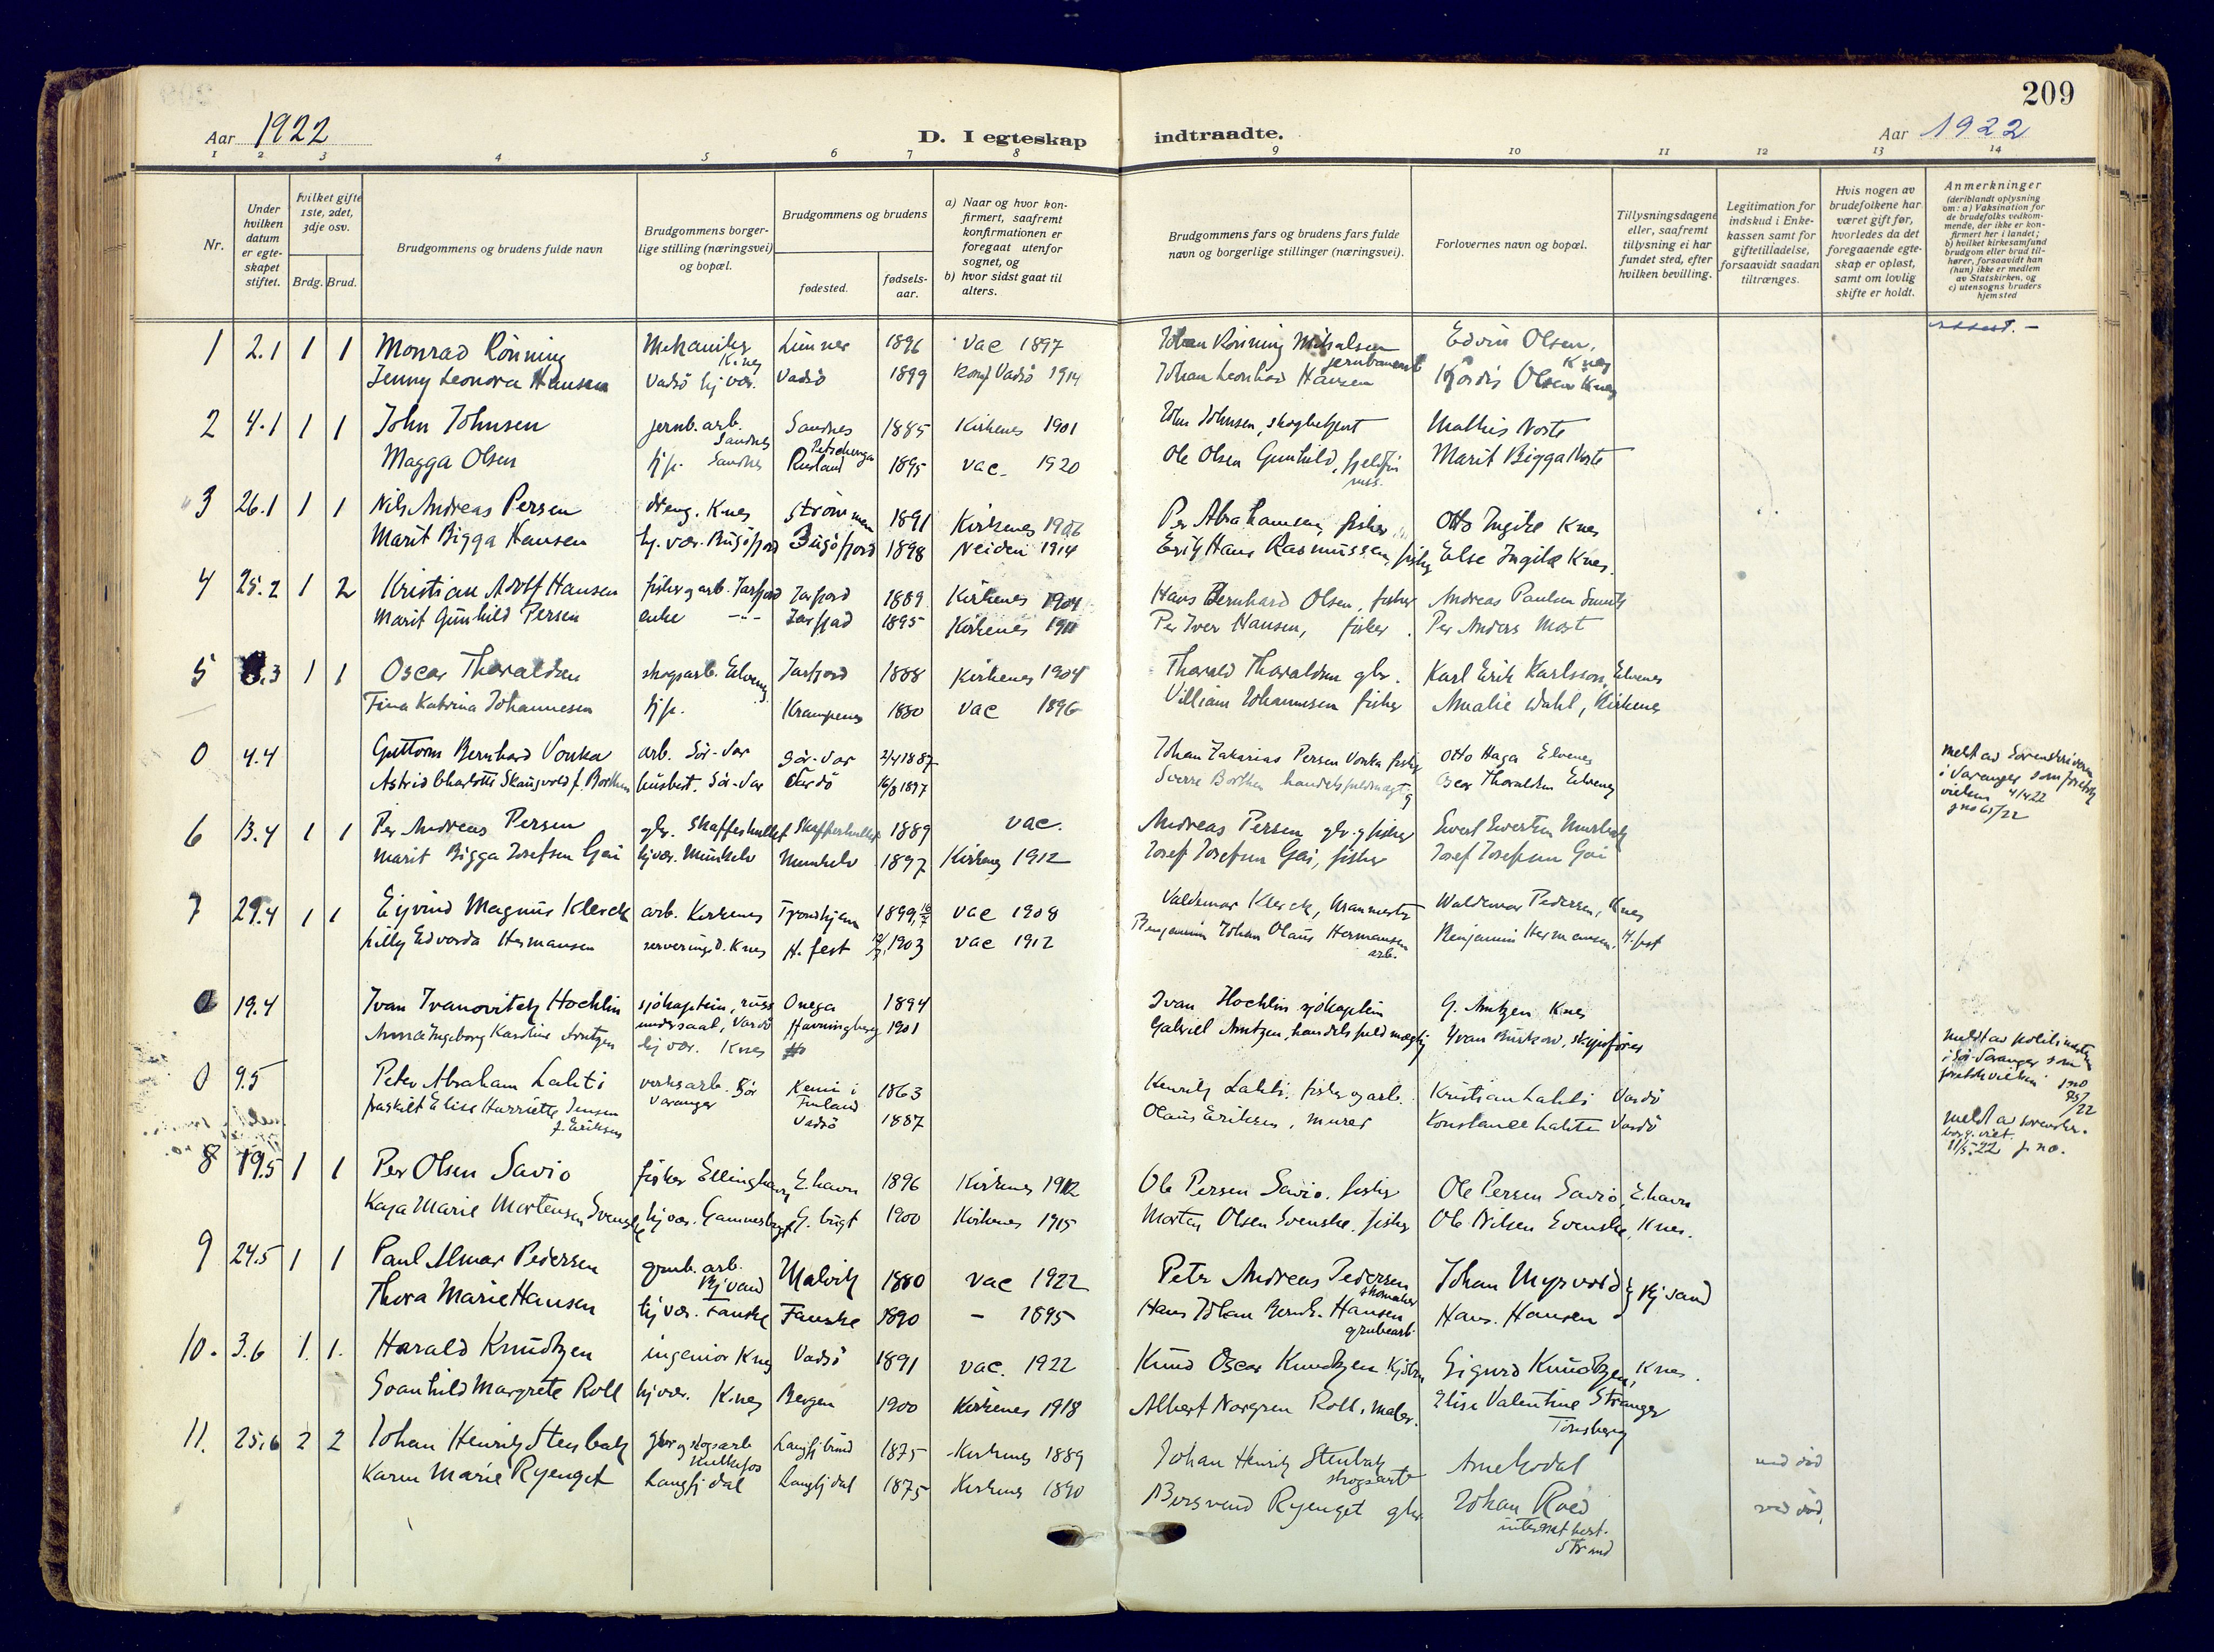 209
Aar 1922 D. I egteskap indtraadte. Aar 1922
1 2 3 4 5 6 7 8 9 10 11 12 13 14
Nr.
Under hvilken datum er egteskapet stiftet.
Hvilket gifte 1ste, 2det, 3dje osv.
Brdg. Brud.
Brudgommens og brudens fulde navn
Brudgommens borgerlige stilling (næringsvei) og bopæl.
Brudgommens og brudens
fødested. fødselsaar.
a) Naar og hvor konfirmert, saafremt konfirmationen er foregaat utenfor sognet, og
b) hvor sidst gaat til alters.
Brudgommens fars og brudens fars fulde navn og borgerlige stillinger (næringsvei).
Forlovernes navn og bopæl.
Tillysningsdagene eller, saafremt tillysning ei har fundet sted, efter hvilken bevilling.
Legitimation for indskud i Enkekassen samt for giftetilladelse, forsaavidt saadan tiltrænges.
Hvis nogen av brudefolkene har været gift før, hvorledes da det foregaaende egteskap er opløst, samt om lovlig skifte er holdt.
Anmerkninger (deriblandt oplysning om: a) Vaksination for de brudefolks vedkommende, der ikke er konfirmert her i landet; b) hvilket kirkesamfund brudgom eller brud tilhører, forsaavidt han (hun) ikke er medlem av Statskirken, og c) utensogns bruders hjemsted
1 2.1 1 1 Monrad Rönning Mekaniker Knes 1896 Vac 1897 Johan Rönning Mikalsen Edvin Olsen, Knes
Jenny Leonora Hansen Vadsö hj. vær. Vadsö 1899 konf Vadsö 1914 Johan Leonhard Hansen Hjördis Olsen Knes
2 4.1 1 1 John Johnsen jernb. arb. Sandnes Sandnes 1885 Kirkenes 1901 John Johnsen, skogbetjent Mathis Norte
Magga Olsen hj.p. Sandnes Petschenga Rusland 1895 vac. 1920 Ole Olsen Gunhild, fjeldfin russ. Marit Bigga Norte
3 26.1 1 1 Nils Andreas Persen dreng. Knes Strömmen 1891 Kirkenes 1906 Per Abrahamsen, fisker Otto Ingilæ Knes
Marit Bigga Hansen hj. vær. Bugöfjord Bugöfjord 1898 Neiden 1914 Erik Hans Rasmussen, fisker Else Ingilæ Knes.
4 25.2 1 2 Kristian Adolf Hansen fisker og arb. Jarfjord Jarfjord 1889 Kirkenes 1904 Hans Bernhard Olsen, fisker Andreas Paulsen
Marit Gunhild Persen enke -"- Jarfjord 1895 Kirkenes 1911 Per Iver Hansen, fisker. Per Anders Most
5 .3 1 1 Oscar Thoraldsen skogsarb. Elvenes Jarfjord 1888 Kirkenes 1904 Thorald Thoraldsen gbr. Karl Erik Karlsson, Elvenes
Fina Katrina Johannesen hj.p. Krampenes 1880 vac 1896 Villiam Johannesen fisker Amalie Wahl, Kirkenes
0 4.4 Guttorm Bernhard Vonka arb. Sör-Var Sör-Var 2/4 1887 Johan Zakarias Persen Vonka fisker Otto Haga Elvenes
Astrid Charlotte Skaugvold f. Borthen husbest. Sör-Var Vardö 16/8 1897 Sverre Borthen handelsfuldmægtig Oscar Thoraldsen Elvenes
meldt av Sorenskriveren i Varanger som foretok vielsen 4/4 22 jno 65/22
6 13.4 1 1 Per Andreas Persen gbr. Skafferhullet Skafferhullet 1889 vac. Andreas Persen gbr. og fisker
Marit Bigga Josefsen Gai hj. vær. Munkelv Munkelv 1897 Kirkenes 1912 Josef Josefsen Gai, fisker Josef Josefsen Gai
7 29.4 1 1 Eyvind Magnus Klerck arb. Kirkenes Trondhjem 1899 vac 1908 Valdemar Klerck, kranmester Waldemar Pedersen, Knes
Lilly Edvarda Hermansen serveringsd. Knes H.fest 1903 vac 1912 Benjamin Johan Olaus Hermansen arb. Benjamin Hermansen, H.fest
0 19.4 Ivan Ivanovitch Hochlin sjökaptein, russ undersaat, Vardö Onega 1894 Ivan Hochlin sjökaptein G. Arntzen Knes
Anna Ingeborg Karoline Arntzen hj vær. Knes Havningberg 1901 Gabriel Arntzen, handelsfuldmægtig Yvan Burkow, skipsförer
meldt av politimesteren i Sör-Varanger som foretok vielsen jno 75/22
0 9.5 Peter Abraham Lahti verksarb. Sör Varanger Kemi i Finland 1863 Henrik Lahti, fisker og arb. Kristian Lahti Vardö
fraskilt Elise Harriette Jensen f. Eriksen Vadsö 1887 Olaus Eriksen, murer Konstance Lahti Vardö
meldt av sorenskr. borg. viet. 11/5-22 jno.
8 19.5 1 1 Per Olsen Savio fisker Ellinghavn E.havn 1896 Kirkenes 1912 Ole Persen Savio, fisker Ole Persen Savio, E.havn
Kaja Marie Mortensen Svenske hj vær. Gammesbugt G. bugt 1900 Kirkenes 1915 Morten Olsen Svenske, fisker Ole Nilsen Svenske, Knes.
9 24.5 1 1 Paul Almar Pedersen grub. arb. Bj vand Malvik 1880 vac 1922 Peter Andreas Pedersen skomaker Johan Myrvold
Thora Marie Hansen hj vær. Fauske Fauske 1890 - 1895 Hans Johan Bernh. Hansen grubearb. Hans. Hansen
10. 3.6 1. 1. Harald Knudtzen ingeniør Knes Vadsö 1891 vac. 1922 Knud Oscar Knudtzen Sigurd Knudtzen, Knes.
Svanhild Margrete Roll hj vær. Knes Bergen 1900 Kirkenes 1918 Albert Norgren Roll, maler. Elise Valentine Stranger Tönsberg
11. 25.6 2 2 Johan Henrik Stenbak gbr og skogsarb Langfj bund 1875 Kirkenes 1889 Johan Henrik Stenbak skogsarb ved död
Karen Marie Ryenget Langfj dal Langfj dal 1875 Kirkenes 1890 Bersvend Ryenget gbr Johan Roed internatbest. Strand ved död.